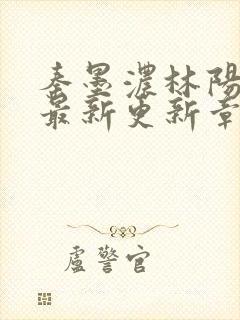 秦墨濃林陽
最新更新章
盧警官